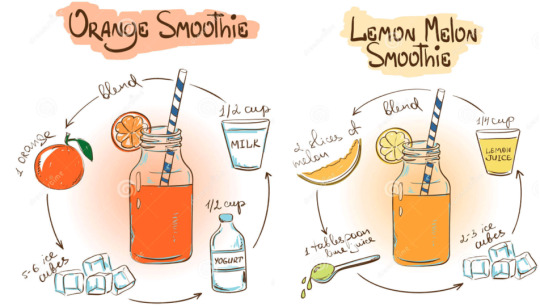 Orange Smoothie
blend
1/2 cup
MILK
1 orange
1/2 cup
YOGURT
5-6 ice
cubes
Lemon Melon
Smoothie
blend
1/4 cup
LEMON
JUICE
2 slices of
melon
2-3 ice
cubes
1 tablespoon
lime juice